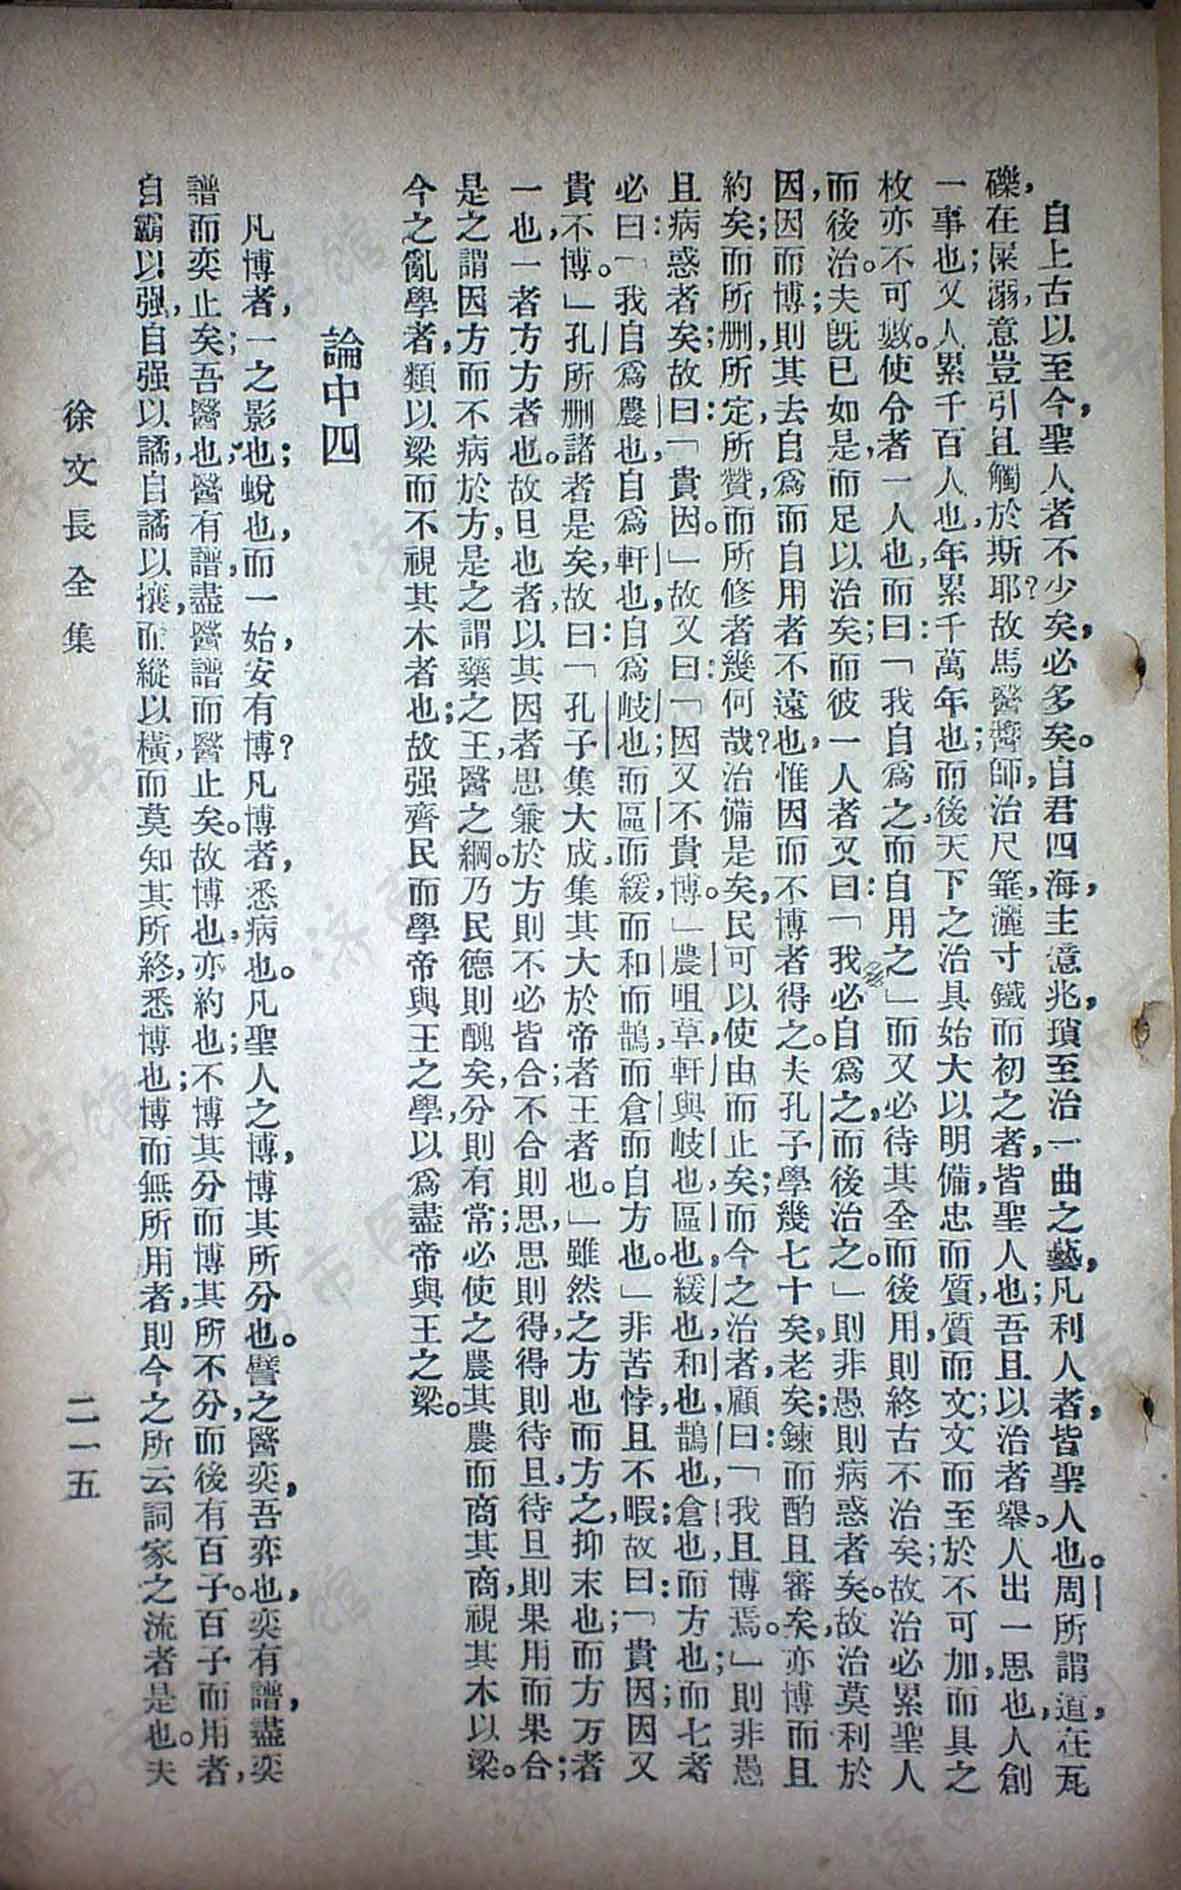 自上古以至今，聖人者不少矣，必多矣。自君四海，主億兆，瑣至治一曲之藝，凡利人者，皆聖人也。周所謂道，在瓦
礫，在屎溺，意豈引且觸於斯耶？故馬醫醬師，治尺箠，灑寸鐵而初之者，皆聖人也；吾且以治者舉。人出一思也，人創
一事也；又人累千百人也，年累千萬年也；而後天下之治具始大以明備，忠而質，質而文，文而至於不可加，而具之
枚亦不可數。使今者一人也，而曰：「我自爲之，而自用之」而又必待其全而後用，則終古不治矣；故治必累聖人
而後治；夫旣已如是，而足以治矣；而彼一人者又曰：「我必自爲之，而後治之。」則非愚則病惑者矣。故治莫利於
因，因而博，則其去自爲而自用者不遠也，惟因而不博者得之。夫孔子學幾七十矣，老矣；鍊而酌且審矣，亦博而且
約矣；而所删，所定，所贊，而所修者幾何哉？治備是矣，民可以使由而止矣；而今之治者，顧曰：「我且博焉。」則非愚
且病惑者矣；故曰：「貴因。」故又曰：「因又不貴博。」農咀草，軒與岐也，區也，緩也，和也，鵲也，倉也，而方也；而七者
必曰：「我自爲農也，自爲軒也，自爲岐也；而區，而緩，而和而鵲，而倉而自方也。」非苦悖，且不暇；故曰：「貴因；因又
貴不博。」孔所删諸者是矣，故曰：「孔子集大成，集其大於帝者王者也。」雖然，之方也，而方之，抑末也；而方方者
一也，一者方方者也。故旦也者，以其因者，思兼於方，則不必皆合；不合則思，思則得，得則待旦，待旦，則果用而果合；
是之謂因方而不病於方，是之謂藥之王，醫之綱。乃民德則醜矣，分則有常；必使之農其農而商其商，視其木以梁。
今之亂學者，類以梁而不視其木者也；故强齊民而學帝與王之學，以爲盡帝與王之梁。
論中四
凡博者，一之影也；蛻也，而一始安有博？凡博者，悉病也。凡聖人之博，博其所分也。譬之醫奕，吾弈也，奕有譜，盡奕
譜而奕止矣；吾醫也，醫有譜，盡醫譜而醫止矣。故博也，亦約也；不博其分而博其所不分，而後有百子。百子而用者，
自霸以强，自强以譎，自譎以攘，而縱以橫，而莫知其所終，悉博也；博而無所用者，則今之所云詞家之流者是也。夫
徐文長全集
二一五